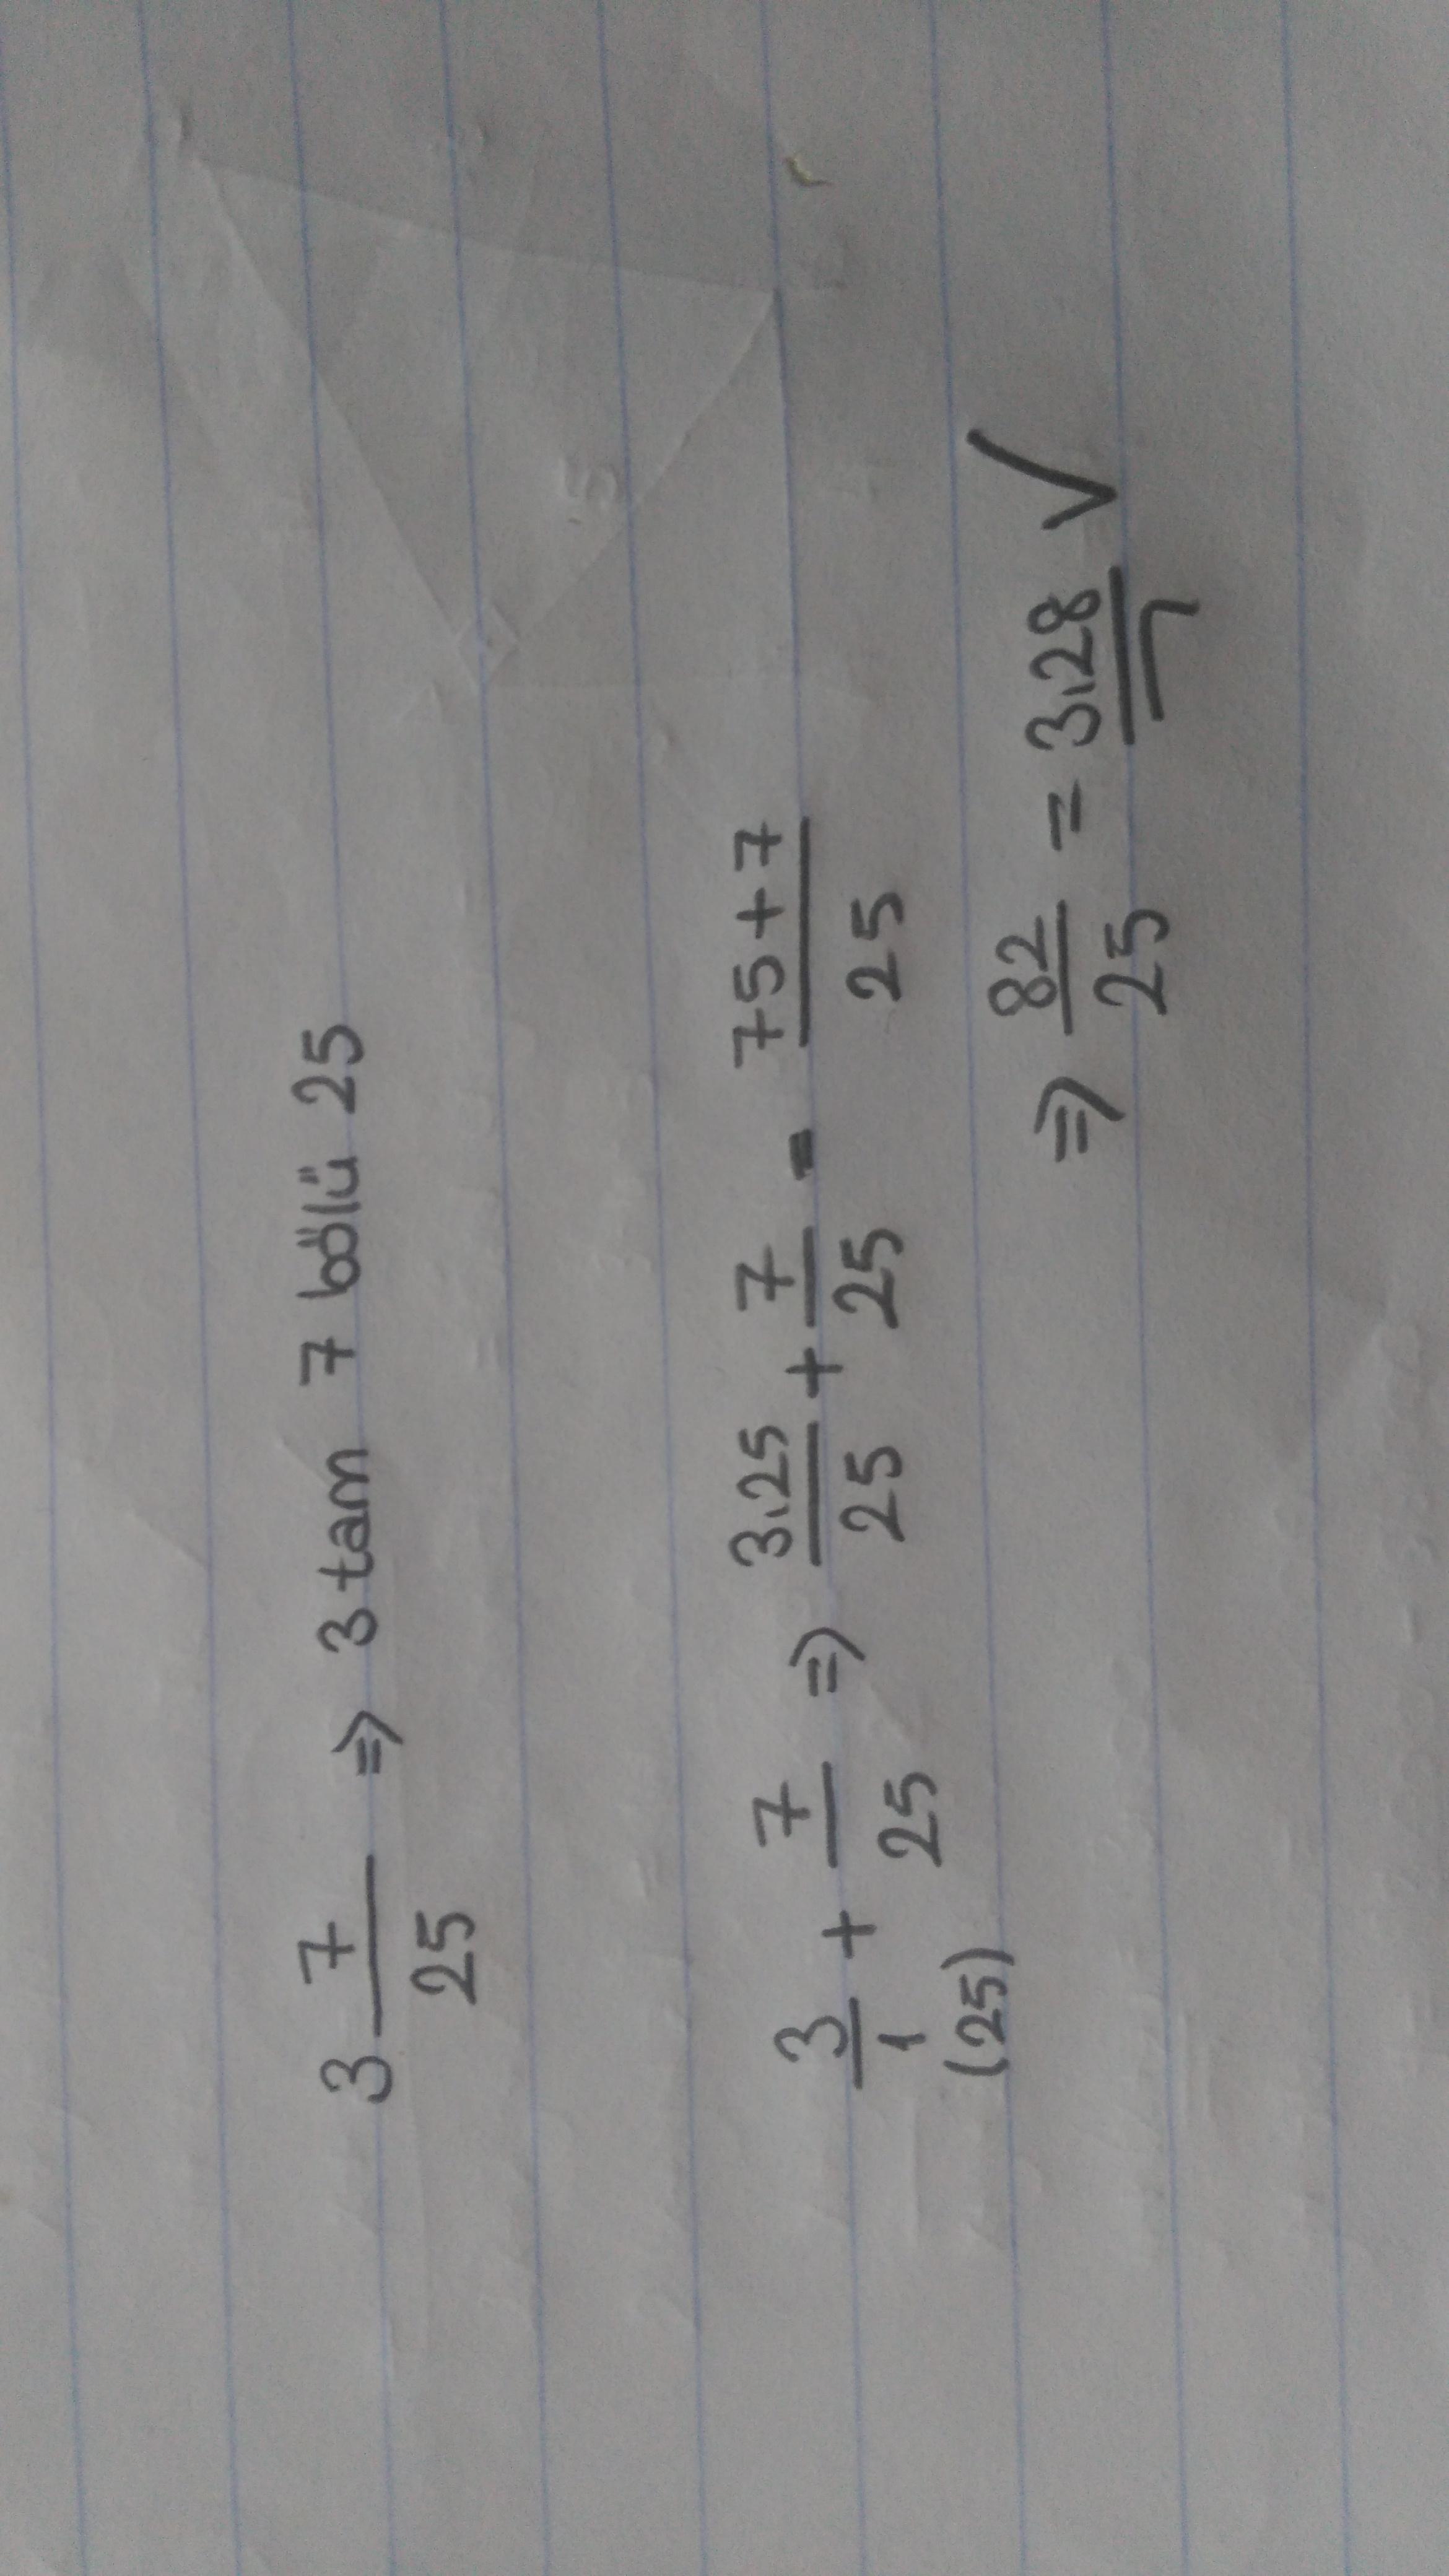 3 7/25 => 3 tam 7 bölü 25
3/1 (25) + 7/25 => 3.25/25 + 7/25 = 75+7/25
=> 82/25 = 3.28 √